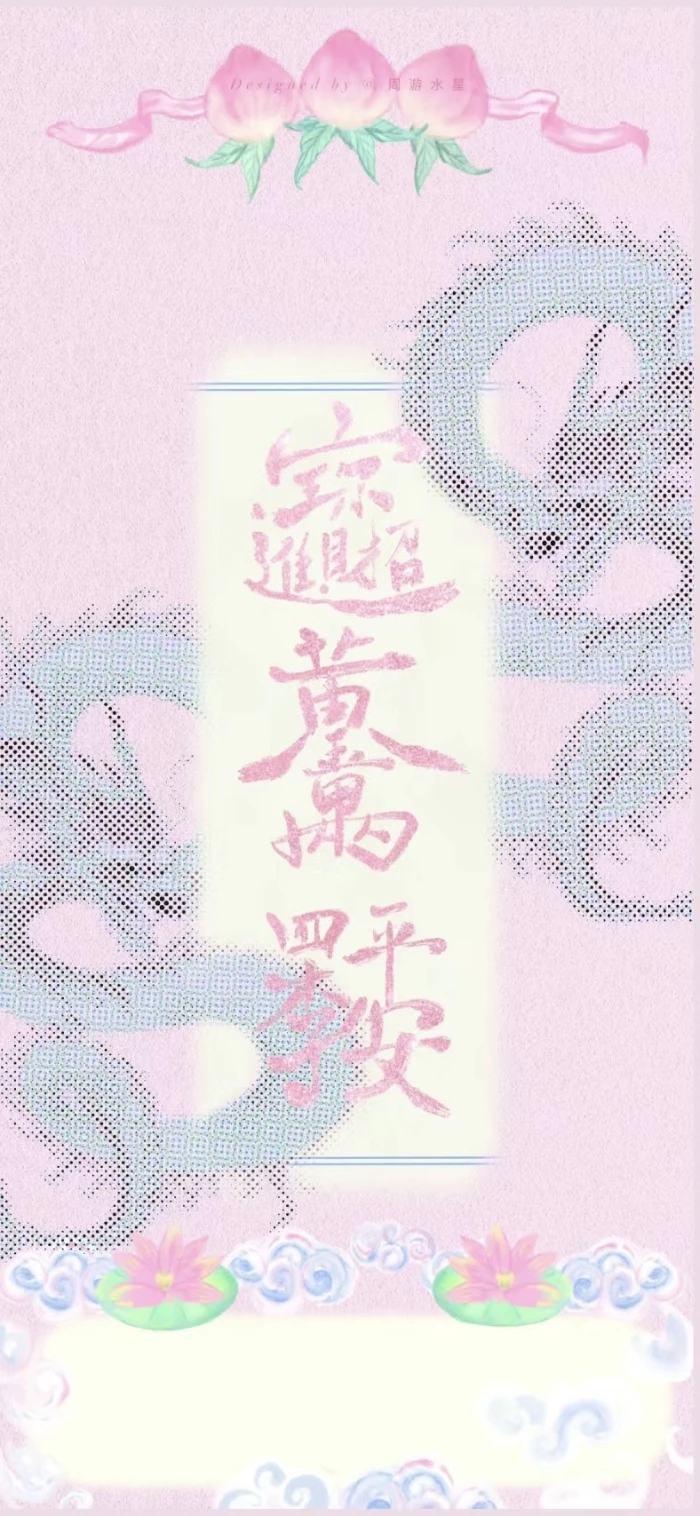 Designed by @ 周游水星
招財進寶
黃金萬兩
四季平安